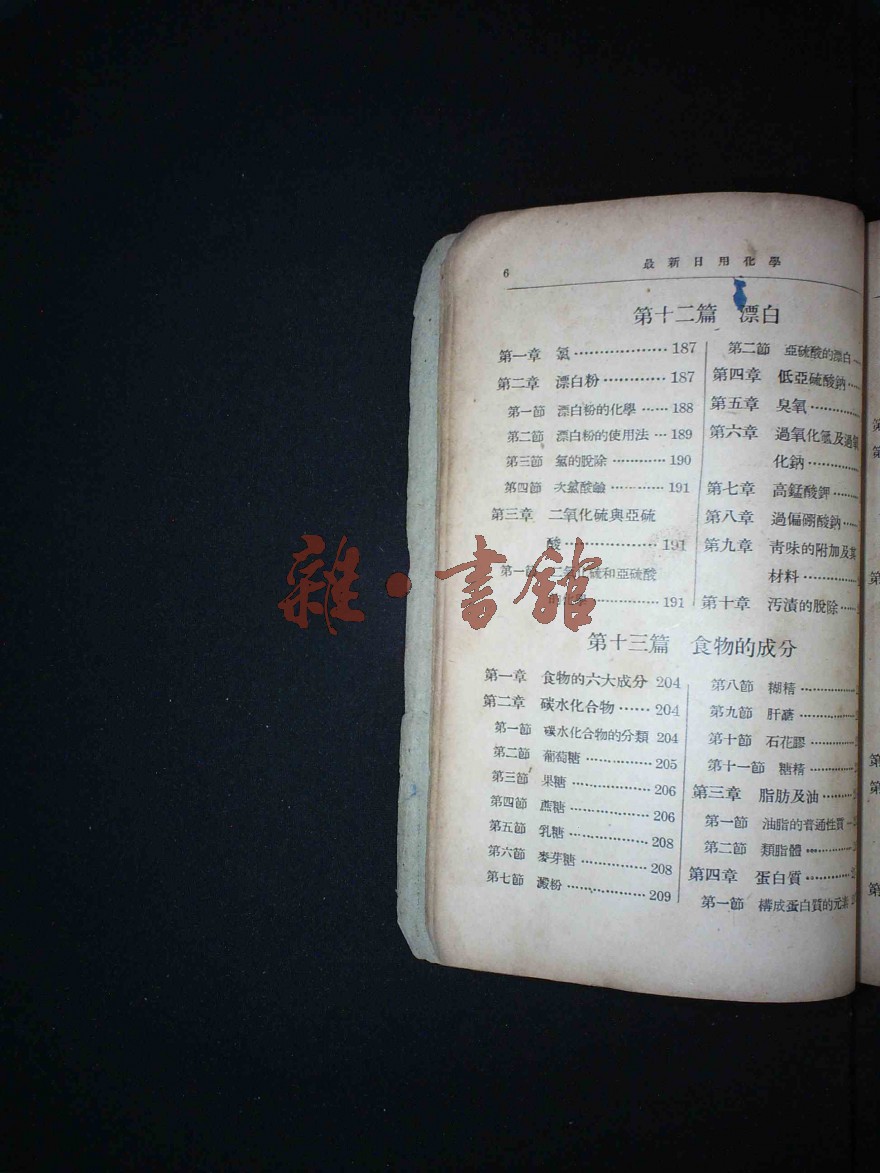 6
最新日用化學
第十二篇 漂白
第一章 氯 187
第二章 漂白粉 187
第一節 漂白粉的化學 188
第二節 漂白粉的使用法 189
第三節 氯的脫除 190
第四節 次氯酸鹼 191
第三章 二氧化硫與亞硫
酸 191
第一節 二氧化硫和亞硫酸
的化學 191
第二節 亞硫酸的漂白
第四章 低亞硫酸鈉
第五章 臭氧
第六章 過氧化氫及過氧
化鈉
第七章 高錳酸鉀
第八章 過偏硼酸鈉
第九章 靑味的附加及其
材料
第十章 汚漬的脫除
第十三篇 食物的成分
第一章 食物的六大成分 204
第二章 碳水化合物 204
第一節 碳水化合物的分類 204
第二節 葡萄糖 205
第三節 果糖 206
第四節 蔗糖 206
第五節 乳糖 208
第六節 麥芽糖 208
第七節 澱粉 209
第八節 糊精
第九節 肝醣
第十節 石花膠
第十一節 糖精
第三章 脂肪及油
第一節 油脂的普通性質
第二節 類脂體
第四章 蛋白質
第一節 構成蛋白質的元素
雜·書館